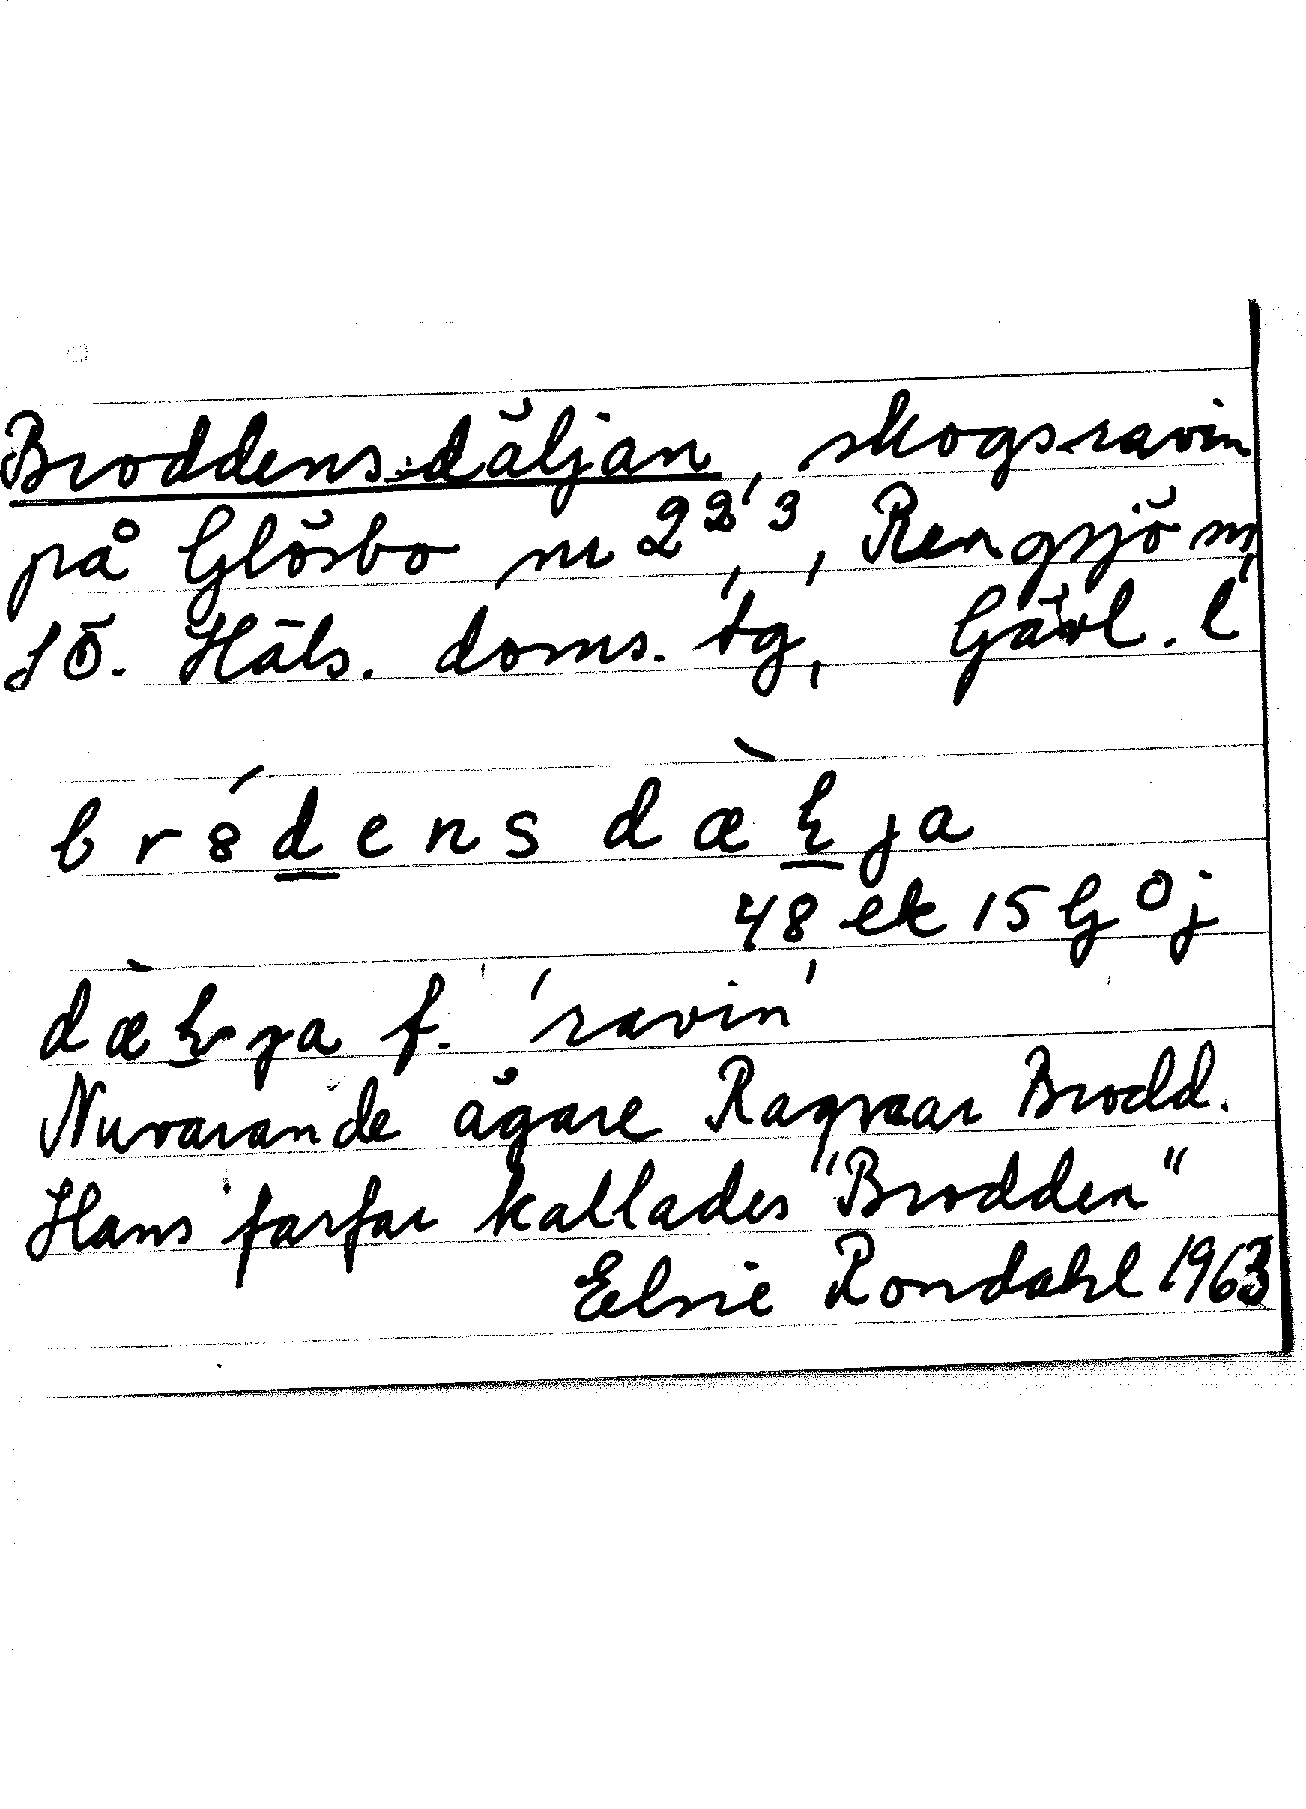 Broddens däljan, skogsravin
på Glösbo nr 2²'³, Rengsjö sn,
SÖ. Häls. doms. tg, Gävl. l
br8́densdæ̀ɭja
48 ek 15 G Ö j
dæ̀ɭja f. 'ravin'
Nuvarande ägare Ragvar Brodd.
Hans farfar kallades "Brodden"
Elsie Rondahl 1963